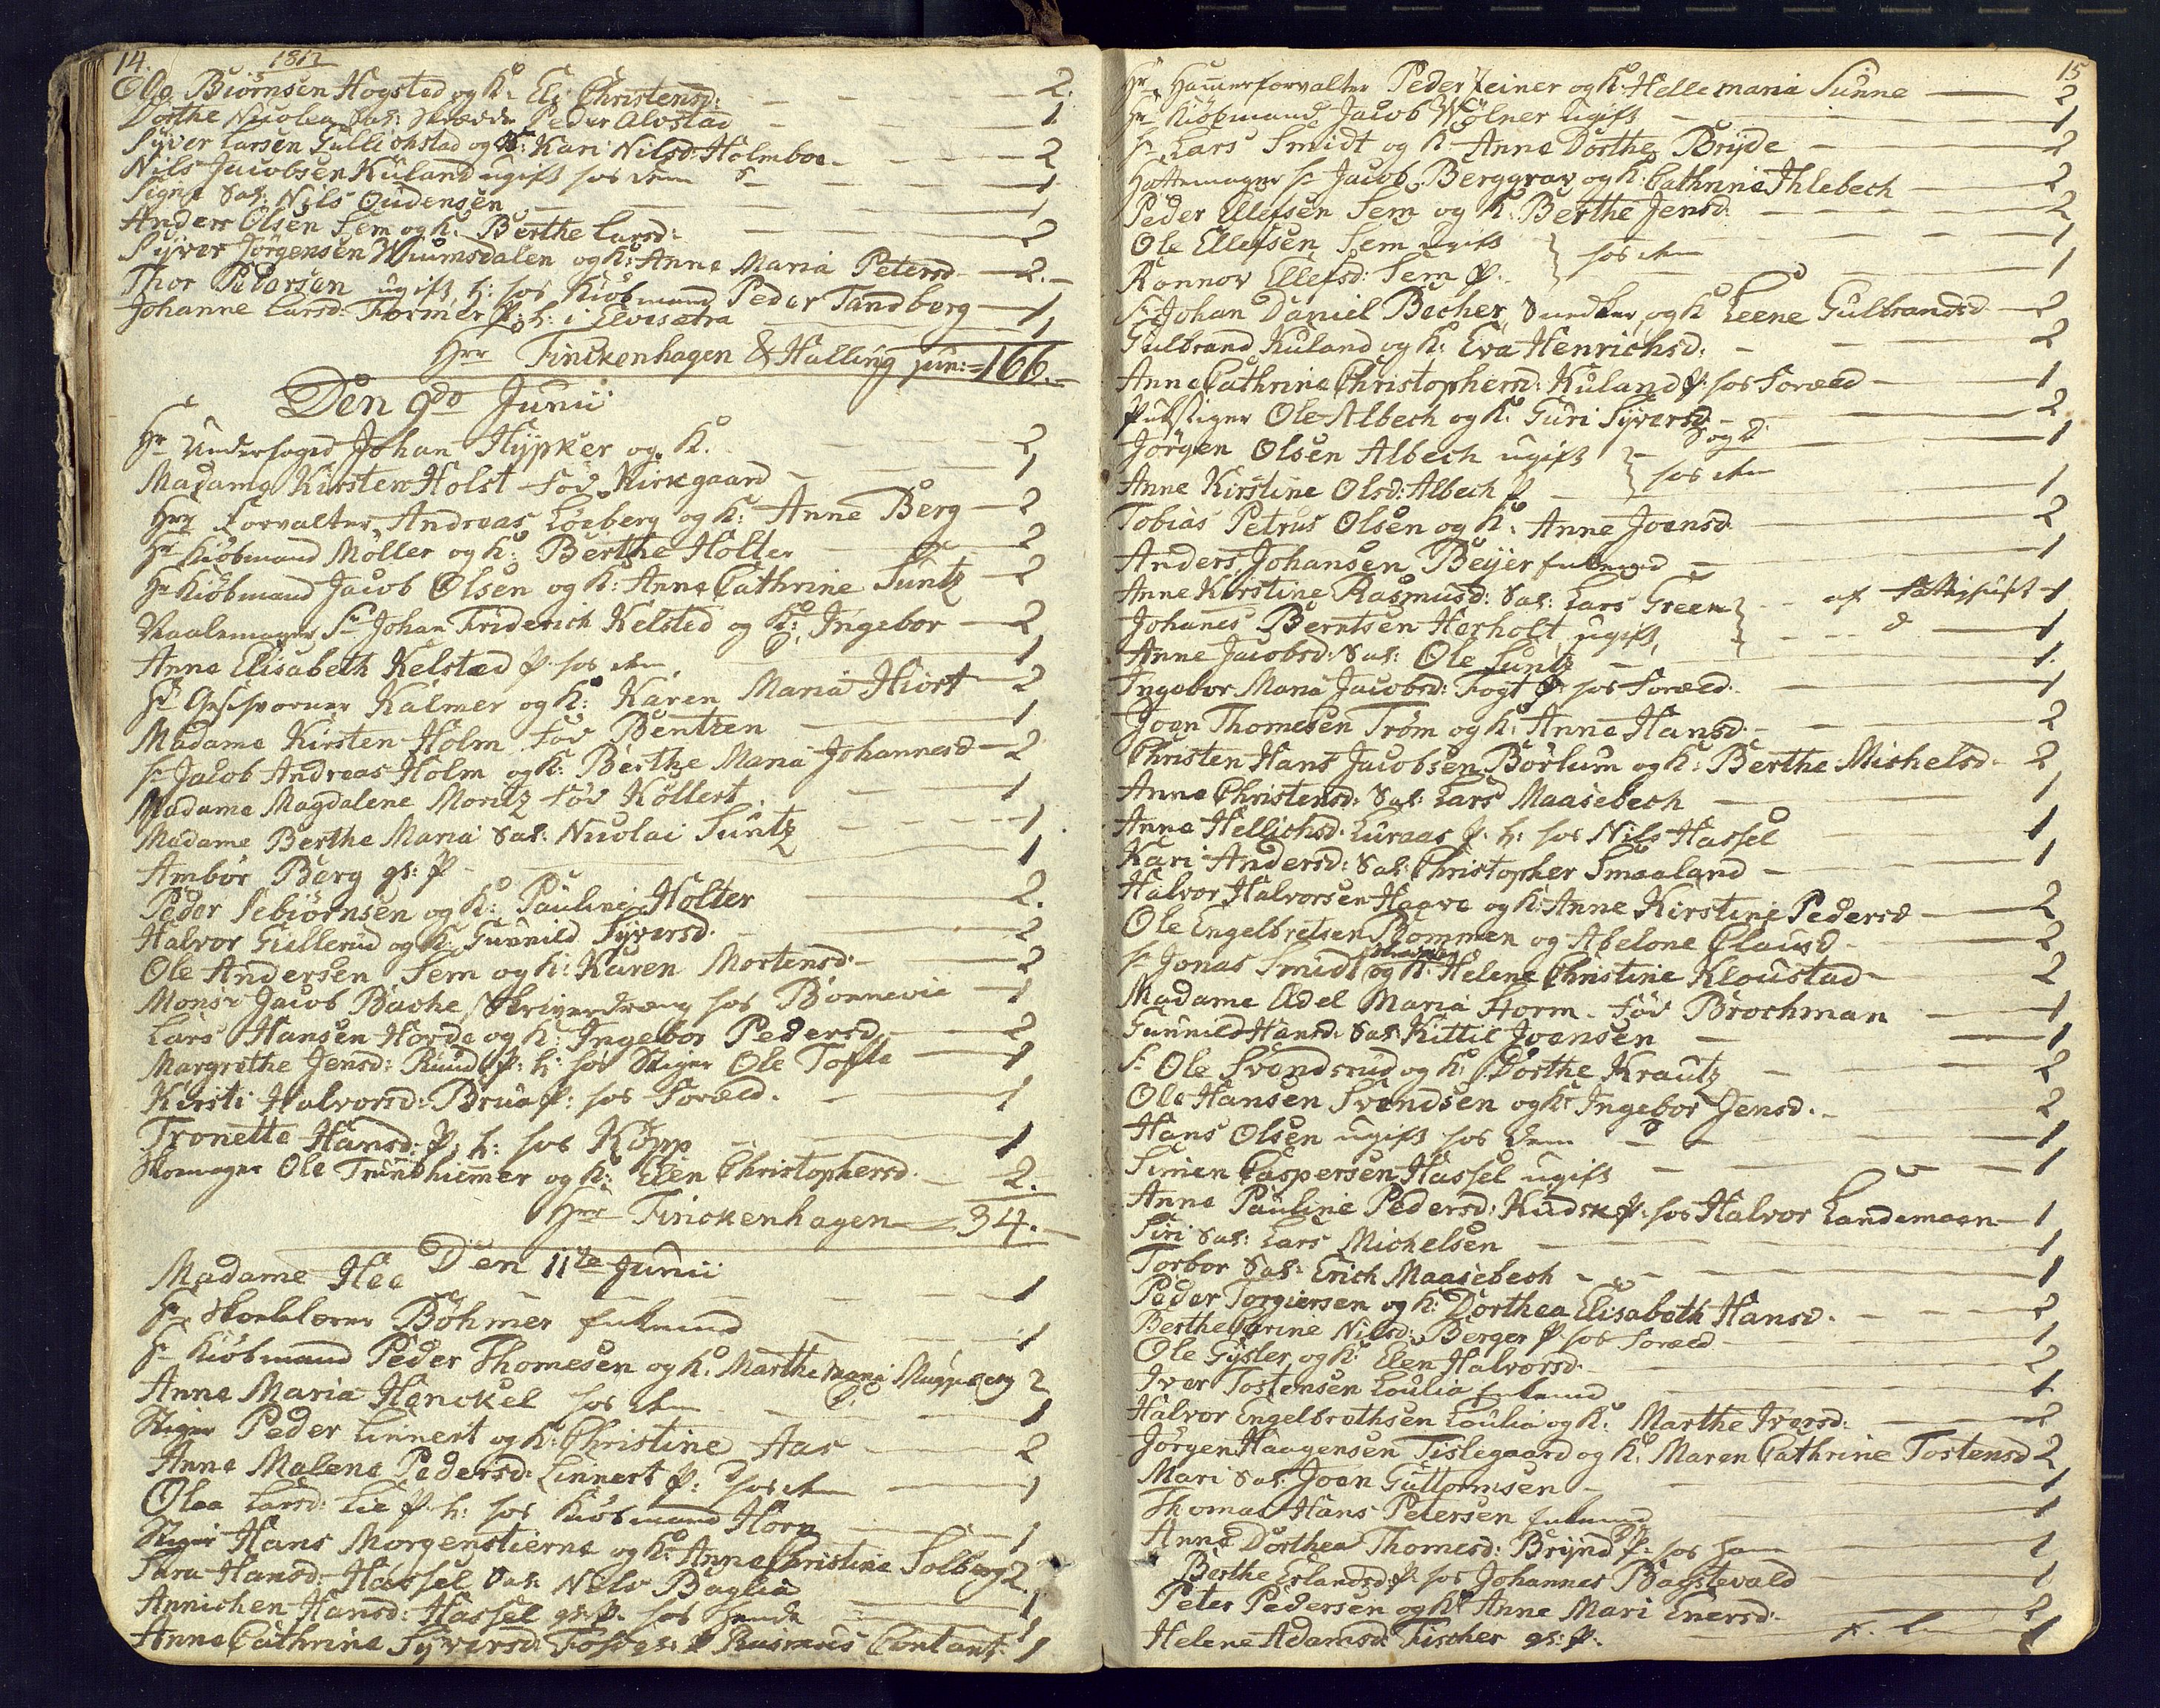 14. 1812
Ole Biörnsen Hogstad og K: Eli Christensd: 2.
Dorthe Nicolea Sal: Peder Alvstad 1
Syver Larsen Gullichstad og K: Kari Nilsd: Holmboe 2
Nils Jacobsen Kuland ugift hos dem 1
Signe Sal: Nils Oudensen 1
Anders Olsen Sem og K: Berthe Larsd: 2
Syver Jörgensen Wiumsdalen og K: Anne Maria Petersd 2.
Thor Pedersen ugift h: hos Kiöbmand Peder Tandberg 1
Johanne Larsd: P: h: i Elvesætra 1
Hrr Finckenhagen & Halling jun: 166.
Den 9de Junii
Hr Underfoged Johan Hypker og K. 2
Madame Kirsten Holst föd Kirkgaard 1
Hrr Forvalter Andreas Löeberg og K: Anne Berg 2
Hr Kiöbmand Möller og K: Berthe Holter 2
Hr Kiöbmand Jacob Olsen og K: Anne Cathrine Suntz 2
Maalemager Sr Johan Friderich Kelsted og K: Ingebor 2
Anne Elisabeth Kelsted P. hos dem 1
Hr Geschworner Kalmer og K: Karen Maria Hiort 2
Madame Kirsten Holm föd Bentzen 1
Sr Jacob Andreas Holm og K: Berthe Maria Johannesd 2
Madame Magdalene Moritz föd Köllert 1
Madame Berthe Maria Sal: Nicolai Suntz 1
Ambör Berg gl: P 1
Peder Sebiörnsen og K: Pauline Holter 2.
Halvor Gullerud og K: Gunnild Syversd. 2
Ole Andersen Sem og K: Karen Mortensd: 2
Monsr Jacob Bache Skriverdreng hos Bonnevie 1
Lars Hansen Horde og K: Ingebor Pedersd. 2
Margrethe Jensd: Ruud P: h: hos Stiger Ole Tofte 1
Kirsti Halvorsd: Brua P: hos Foræld. 1
Tronette Hansd: P: h: hos Köpp 1
Skomager Ole Trundhiemer og K: Elen Christophersd. 2.
Hrr Finckenhagen 34.
Den 11te Junii
Madame Hee 1
Hr Skolelærer Böhmer Enkemd 1
Hr Kiöbmand Peder Thomesen og K. Marthe Maria 2
Anne Maria Henckel hos dem 1
Stiger Peder Linnert og K: Christine Aas 2
Anne Malene Pedersd: Linnert P: hos dem 1
Olea Larsd: Lie P. h: hos Kiöbmand Horn 1
Stiger Hans Morgenstierne og K: Anne Christine Solberg 2.
Sara Hansd: Hassel Sal: Nils Baglia 1
Annichen Hansd: Hassel gl: P. hos hende 1
Anne Cathrine Syversd: Foss gl: P Rasmus Contant 1
15
Hr Hammerforvalter Peder Steiner og K: Helle Maria Sunne 2
Hr Kiöbmand Jacob Wölner ugift 1
Sr Lars Smidt og K Anne Dorthe Bryde 2
Hattemager Sr Jacob Berggrav og K: Cathrine Ihlebech 2
Peder Ellefsen Sem og K: Berthe Jensd: 2
Ole Ellefsen Sem ugift 1
Ronnov Ellefsd: Sem P. hos dem 1
Sr Johan Daniel Becher, Snedker og K Leene Gulbrandsd 2
Gulbrand Kuland og K: Eva Henrichsd: 2
Anne Cathrine Christophersd: Kuland P: hos Foræld 1
Pukstiger Ole Albech og K. Guri Syversd. 2
Jörgen Olsen Albech ugift 1
Anne Kirstine Olsd: Albech P hos dem 1
Tobias Petrus Olsen og K: Anne Joensd. 2
Anders Johansen Beyer Enkemd 1
Anne Kirstine Rasmusd: Sal: Lars Green af Fattighuset 1
Johanes Berntsen Herholt ugift, 1
Anne Jacobsd: Sal: Ole Suntz 1.
Ingebor Maria Jacobsd: Fogt P: hos Foræld. 1
Joen Thomesen Tröm og K: Anne Hansd. 2
Christen Hans Jacobsen Börlum og K: Berthe Michelsd 2
Anne Christensd: Sal: Lars Maasebech 1
Anne Hellichsd: Luraas P: h: hos Nils Hassel 1
Kari Andersd: Sal: Christopher Smaaland 1
Halvor Halvorsen Haave og K: Anne Kirstine Pedersd 2
Ole Engelbretsen Plommen og Abelone Clausd 2
Sr Jonas Smidt og K: Helene Christine Kloustad 2
Madame Edel Maria Horm föd Brochman 1
Gunnild Hansd: Sal: Kittil Joensen 1
Sr Ole Svendsrud og K: Dorthe Krautz 2
Ole Hansen Svendsen og K: Ingebor Jensd. 2
Hans Olsen ugift hos dem 1
Simen Caspersen Hassel ugift 1
Anne Pauline Pedersd: Kudsk P: hos Halvor Landemaen 1
Siri Sal: Lars Michelsen 1
Torbor Sal: Erich Maasebech 1
Peder Torgiersen og K: Dorthea Elisabeth Hansd. 2
Berthe Carine Nilsd: Berger P. hos Foræld 1
Ole Gysler og K: Elen Halvorsd. 2
Iver Tostensen Loulia Enkemd 1
Halvor Engelbrethsen Loulia og K: Marthe Iversd: 2
Jörgen Haagensen Tislegaard og K: Maren Cathrine Tostensd 2
Mari Sal: Joen Guttormsen 1
Thomas Hans Petersen Enkemd 1
Anne Dorthea Thomesd: Brynd P: hos ham 1
Berthe Erlandsd: P: hos Johannes Bagstevold 1
Peter Pedersen og K: Anne Mari Enersd: 2
Helene Adamsd: Fischer gl: P: 1